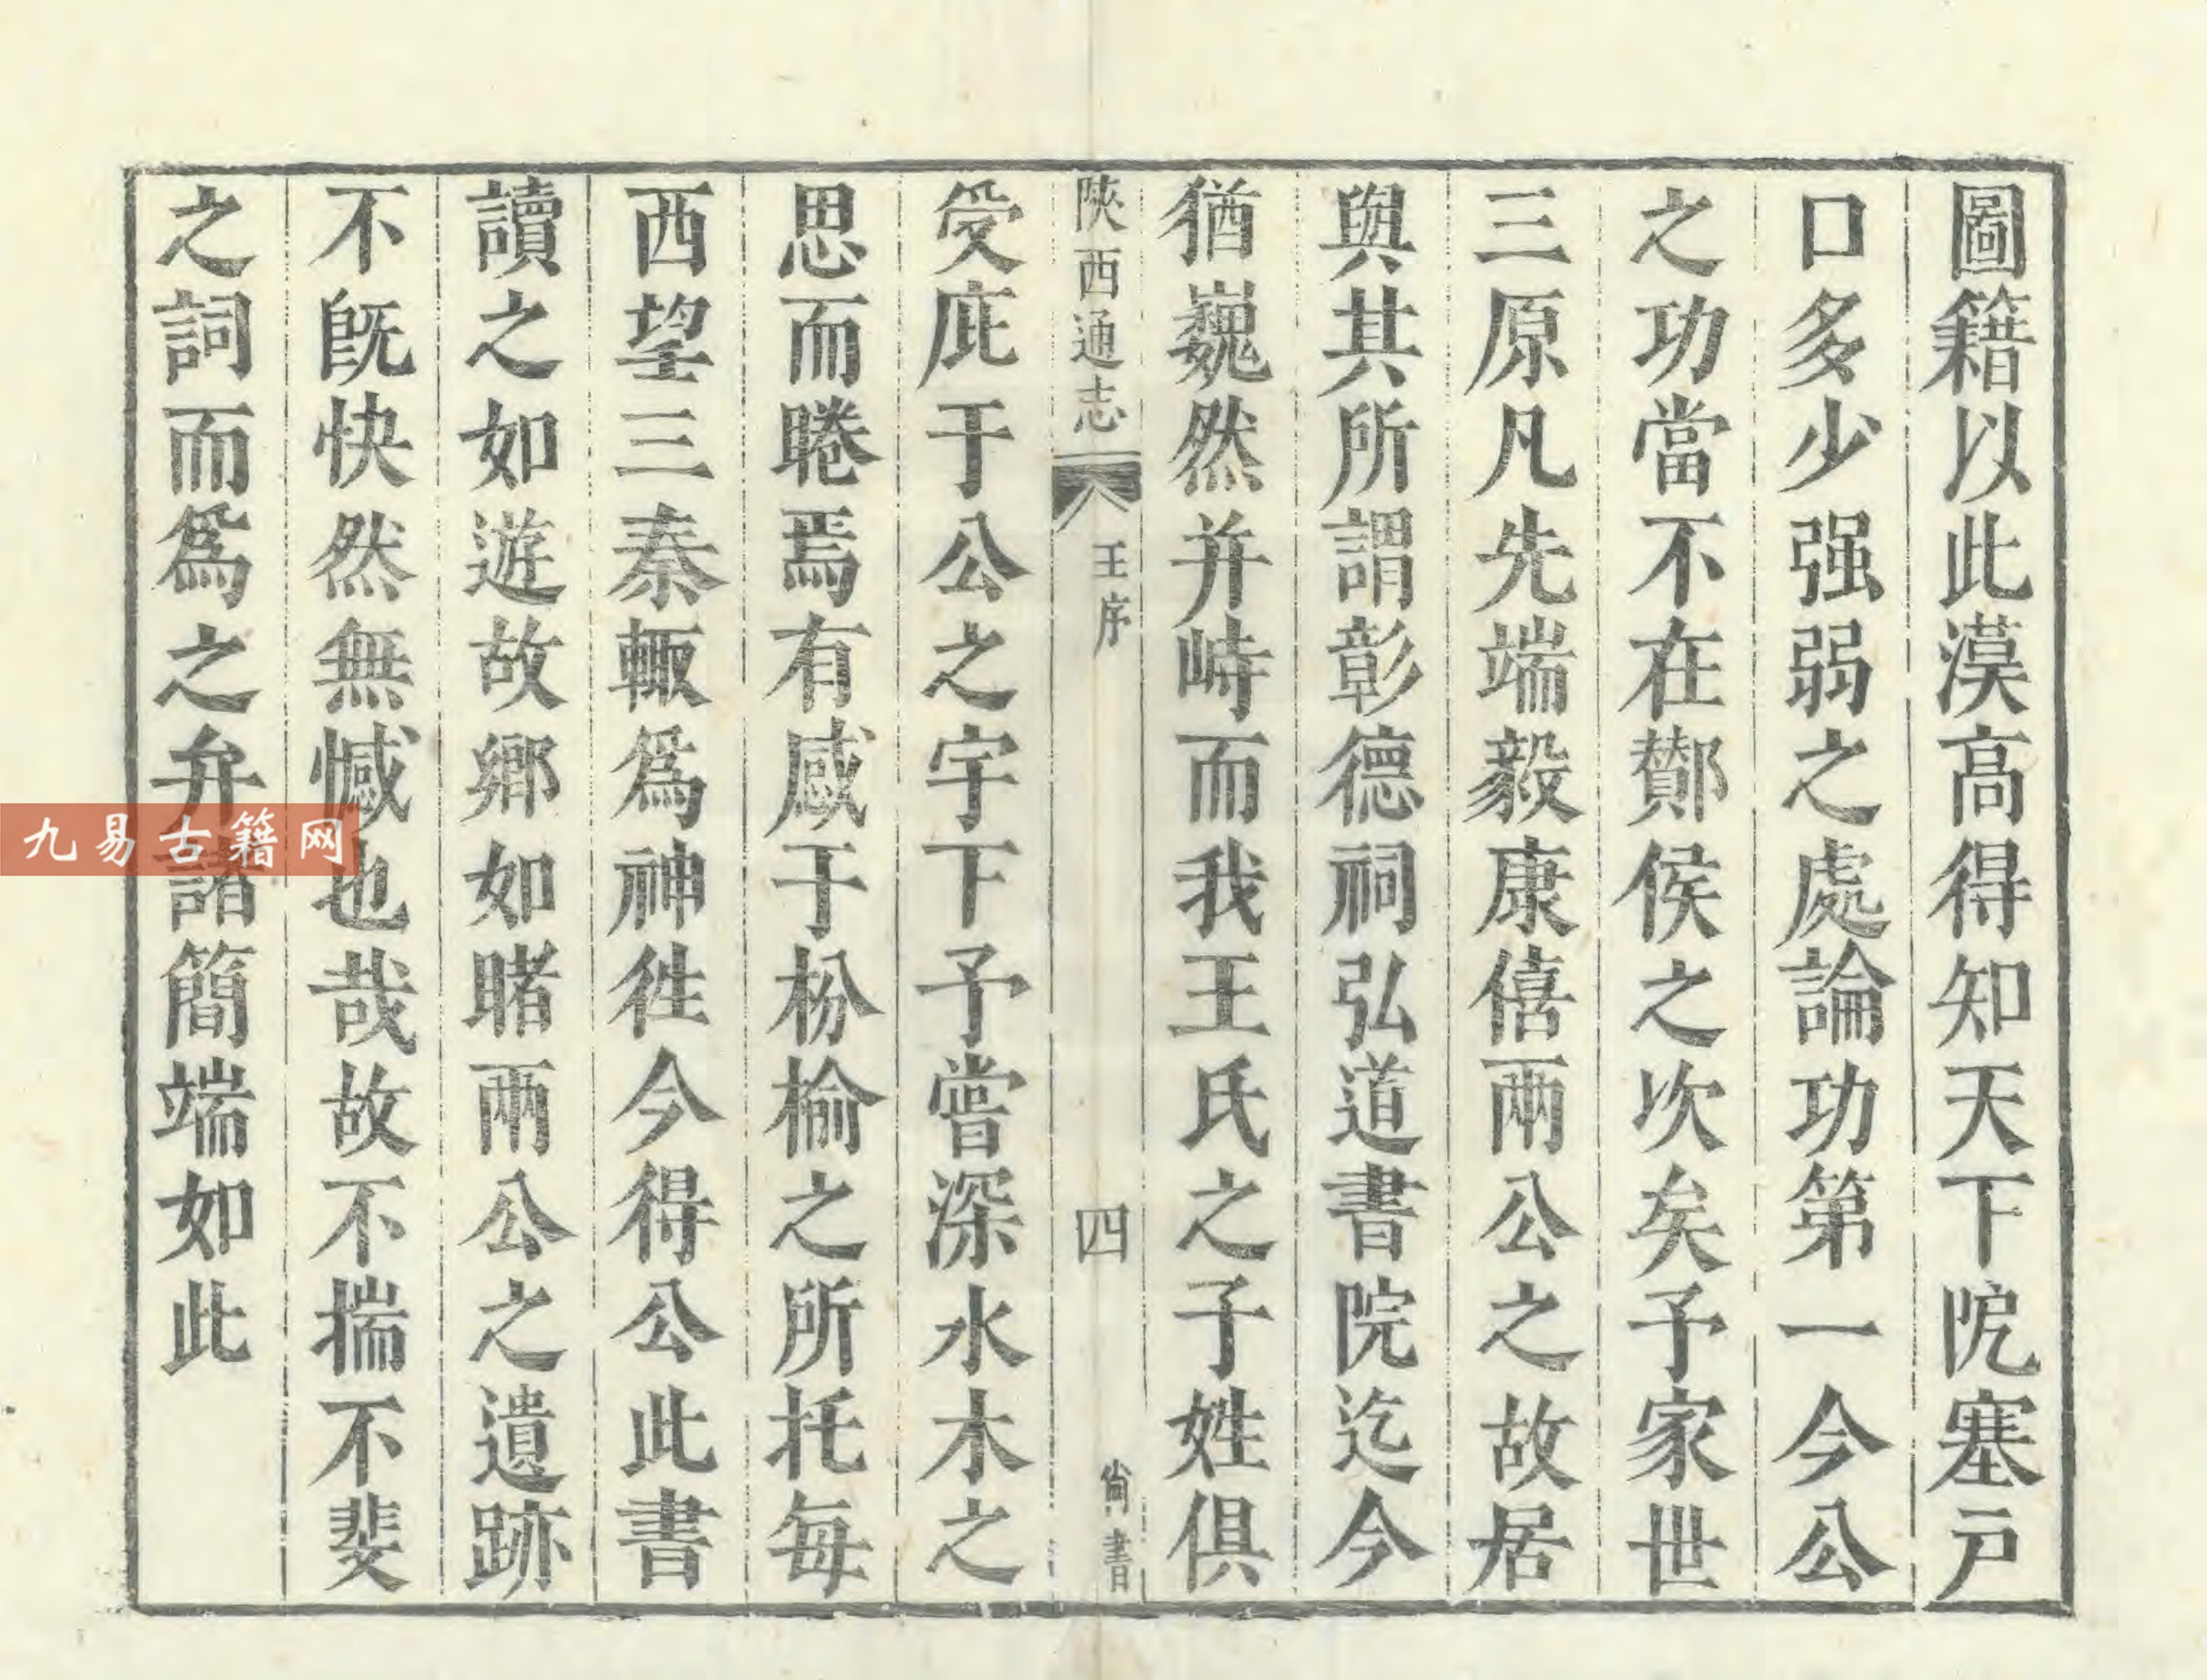 圖籍以此漢高得知天下阨塞戸
口多少强弱之處論功第一今公
之功當不在鄼侯之次矣予家世
三原凡先端毅康僖兩公之故居
與其所謂彰德祠弘道書院迄今
猶巍然并峙而我王氏之子姓俱
陝西通志
王序
四
尙書
受庇于公之宇下予嘗深水木之
思而睠焉有感于枌榆之所托每
西望三秦輙爲神徃今得公此書
讀之如遊故鄉如睹兩公之遺跡
不旣快然無憾也哉故不揣不斐
之詞而爲之弁諸簡端如此
九易古籍网